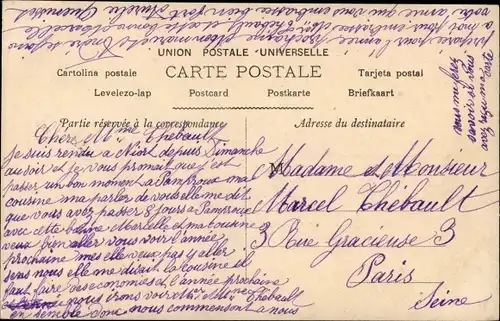 UNION POSTALE UNIVERSELLE
Cartolina postale CARTE POSTALE Tarjeta postal
Levelezo-lap Postcard Postkarte Briefkaart
Partie réservée à la correspondance
Adresse du destinataire
Chère Mme Thébault
Je suis rendu a Niort depuis Dimanche
au soir et je vous promait que j'est
passer un bon moment a Pamproux ma
cousine ma parler de vous elle me dit
que vous avez passer 8 jours a Pamproux
avec cette bonne Marselle et ma cousine
veux bien aller vous voir l'année
prochaine mes elle veux pas y aller
sens nous elle me disait la cousine il
faut faire des economes et l'année prochaine
nous irons voir Mme Thébault
en semble donc nous commenson a nous
Madame et Monsieur
Marcel Thébault
3 Rue Gracieuse 3
Paris
Seine
preparer pour l'année prochaine
vous me ferez
savoir si vous
avez reçu ma carte